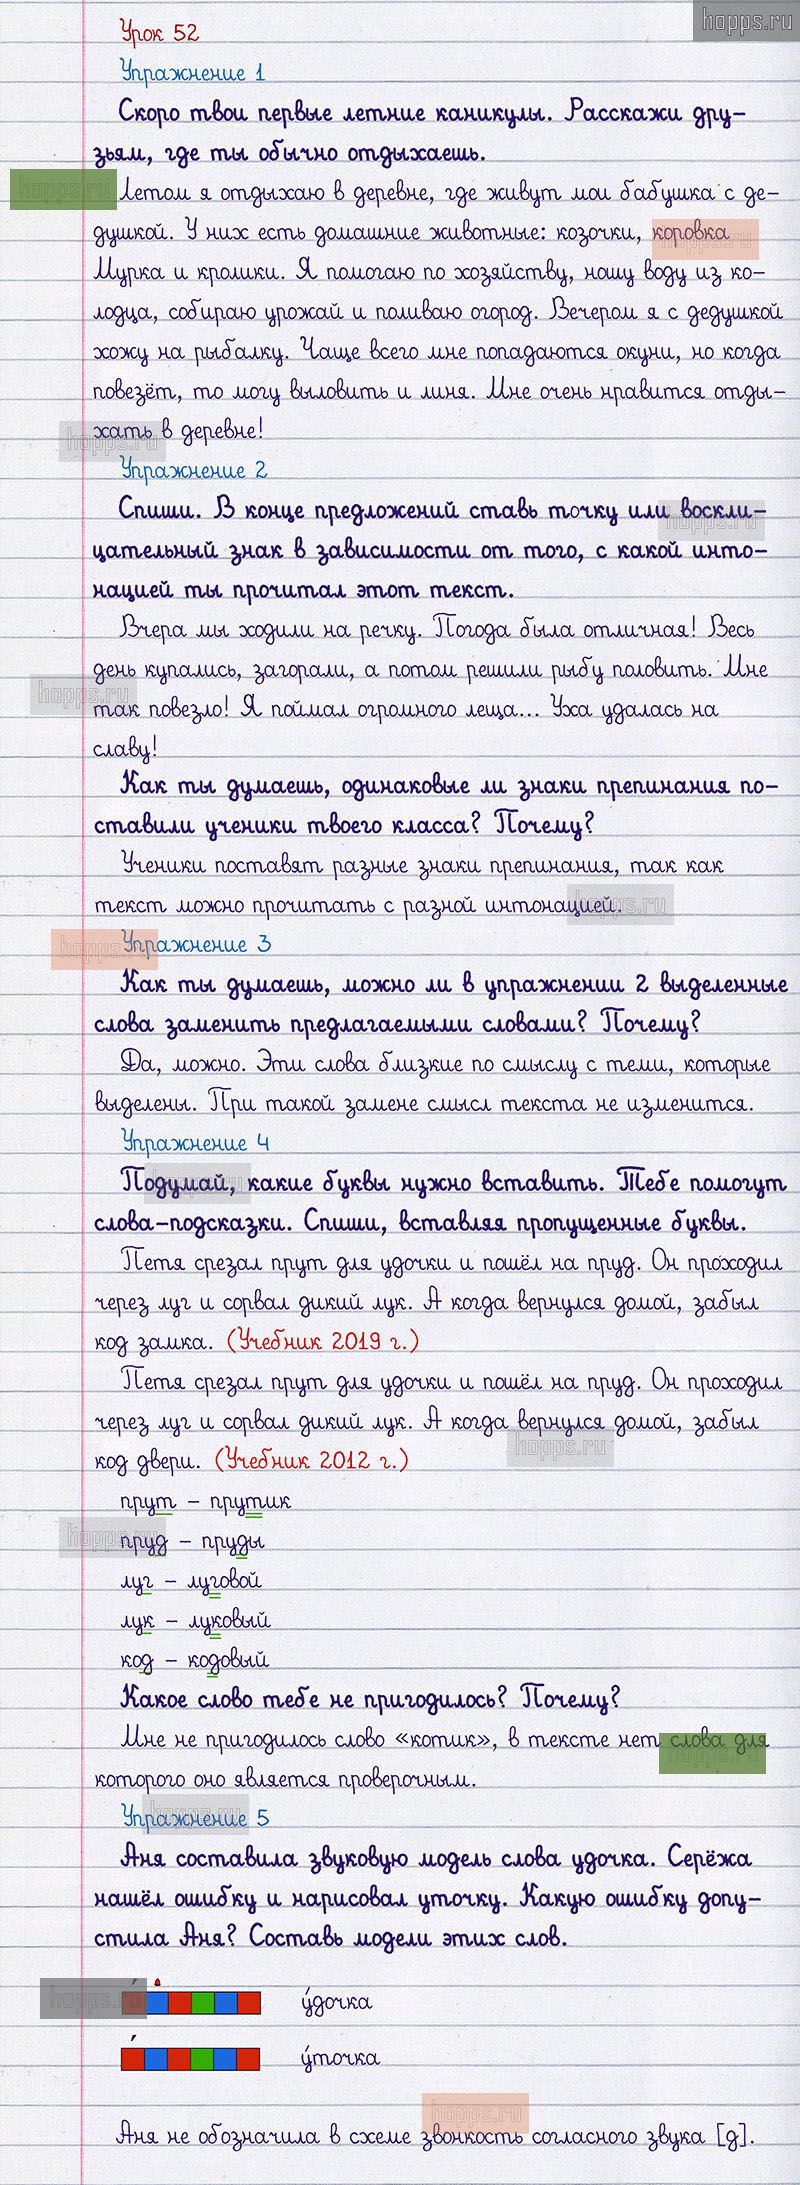 hopps.ru
Урок 52
Упражнение 1
Скоро твои первые летние каникулы. Расскажи дру-
зьям, где ты обычно отдыхаешь.
hopps.ru
Летом я отдыхаю в деревне, где живут мои бабушка с де-
душкой. У них есть домашние животные: козочки, коровка
hopps.ru
Мурка и кролики. Я помогаю по хозяйству, ношу воду из ко-
лодца, собираю урожай и поливаю огород. Вечером я с дедушкой
хожу на рыбалку. Чаще всего мне попадаются окуни, но когда
повезёт, то могу выловить и линя. Мне очень нравится отды-
хать в деревне!
hopps.ru
Упражнение 2
Спиши. В конце предложений ставь точку или воскли-
hopps.ru
цательный знак в зависимости от того, с какой инто-
нацией ты прочитал этот текст.
Вчера мы ходили на речку. Погода была отличная! Весь
день купались, загорали, а потом решили рыбу половить. Мне
hopps.ru
так повезло! Я поймал огромного леща... Уха удалась на
славу!
Как ты думаешь, одинаковые ли знаки препинания по-
ставили ученики твоего класса? Почему?
Ученики поставят разные знаки препинания, так как
текст можно прочитать с разной интонацией.
hopps.ru
Упражнение 3
hopps.ru
Как ты думаешь, можно ли в упражнении 2 выделенные
слова заменить предлагаемыми словами? Почему?
Да, можно. Эти слова близкие по смыслу с теми, которые
выделены. При такой замене смысл текста не изменится.
Упражнение 4
Подумай, какие буквы нужно вставить. Тебе помогут
hopps.ru
слова-подсказки. Спиши, вставляя пропущенные буквы.
Петя срезал прут для удочки и пошёл на пруд. Он проходил
через луг и сорвал дикий лук. А когда вернулся домой, забыл
код замка. (Учебник 2019 г.)
Петя срезал прут для удочки и пошёл на пруд. Он проходил
через луг и сорвал дикий лук. А когда вернулся домой, забыл
hopps.ru
код двери. (Учебник 2012 г.)
прут – прутик
пруд – пруды
hopps.ru
луг – луговой
лук – луковый
код – кодовый
Какое слово тебе не пригодилось? Почему?
Мне не пригодилось слово «котик», в тексте нет слова для
hopps.ru
которого оно является проверочным.
Упражнение 5
hopps.ru
Аня составила звуковую модель слова удочка. Серёжа
нашёл ошибку и нарисовал уточку. Какую ошибку допу-
стила Аня? Составь модели этих слов.
hopps.ru
у́дочка
у́точка
hopps.ru
Аня не обозначила в схеме звонкость согласного звука [д].